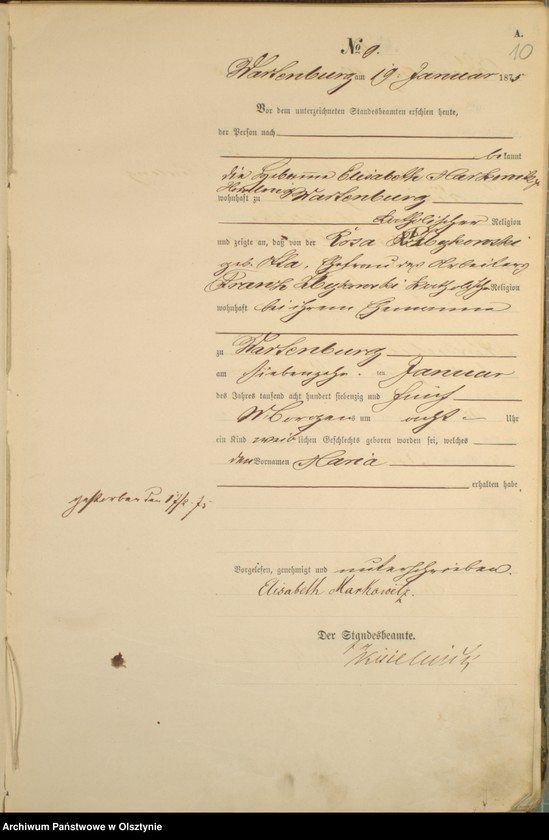 A.
10
No 9.
Wartenburg am 19. Januar 1875
Vor dem unterzeichneten Standesbeamten erschien heute,
der Person nach
bekannt
die Hebamme Elisabeth Markowitz
wohnhaft zu Wartenburg
katholischer Religion
und zeigte an, daß von der Rosa
geb. Ehefrau des Arbeiters
Franz katholischer Religion
wohnhaft bei ihrem Ehemanne
zu Wartenburg
am siebenzehn ten Januar
des Jahres tausend acht hundert siebenzig und fünf
Morgens um acht Uhr
ein Kind weiblichen Geschlechts geboren worden sei, welches
den Vornamen Maria
erhalten habe.
gestorben den
Vorgelesen, genehmigt und unterschrieben.
Elisabeth Markowitz.
Der Standesbeamte.
Archiwum Państwowe w Olsztynie